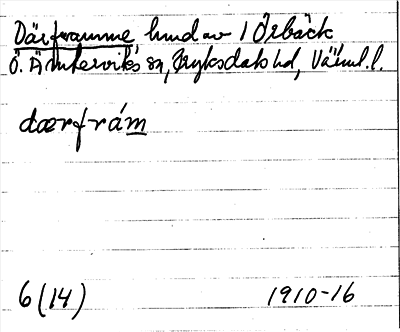 Därframme hmd av 1 Örbäck
Ö. Ämterviks sn, Fryksdals hd, Värml. l.
dærfrám
6 (14) 1910-16